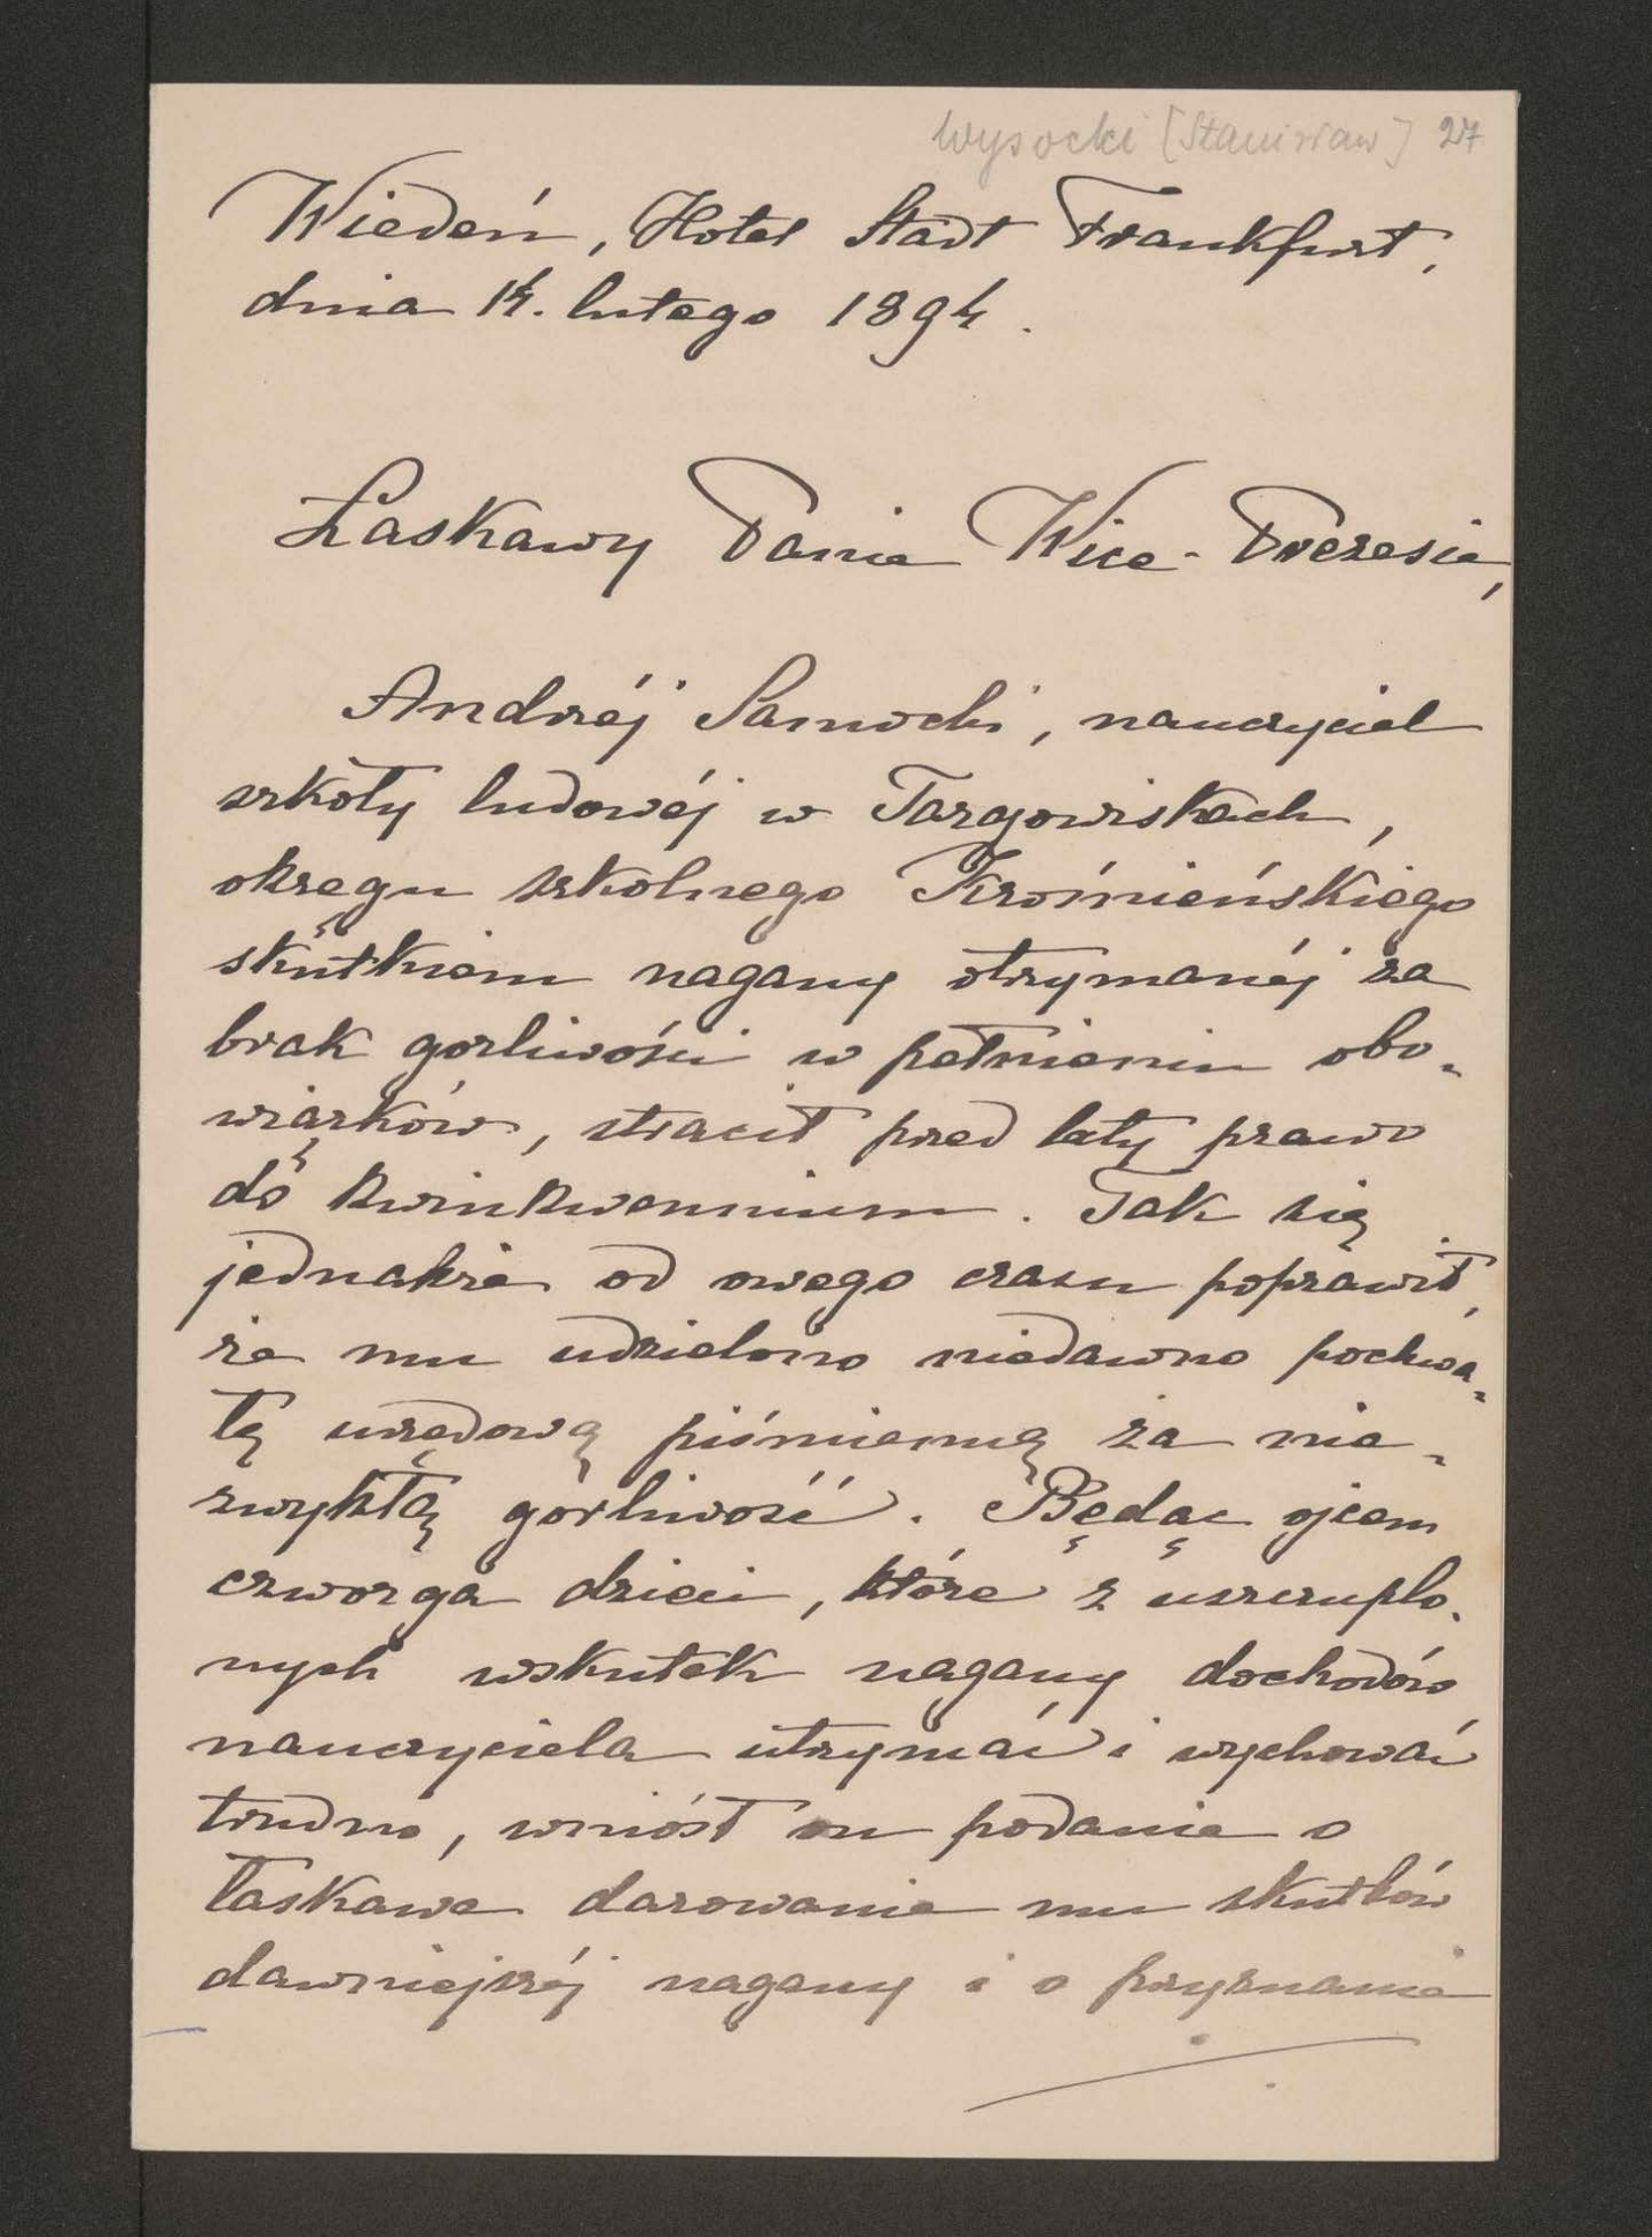 Wysocki [Stanisław] 27
Wiedeń, Hotel Stadt Frankfurt,
dnia 14. lutego 1894.
Łaskawy Panie Wice-Prezesie,
Andrzéj Sanocki, nauczyciel
szkoły ludowéj w Targowiskach,
okręgu szkolnego Krośnieńskiego
skutkiem nagany otrzymanéj za
brak gorliwości w pełnieniu obo-
wiązków, stracił przed laty prawo
do kwinkwennium. Tak się
jednakże od owego czasu poprawił,
że mu udzielono niedawno pochwa-
łę urzędową piśmienną za nie-
zwykłą gorliwość. Będąc ojcem
czworga dzieci, które z uszczuplo-
nych wskutek nagany dochodów
nauczyciela utrzymać i wychować
trudno, wniósł on podanie o
łaskawe darowanie mu skutków
dawniejszéj nagany i o przyznanie